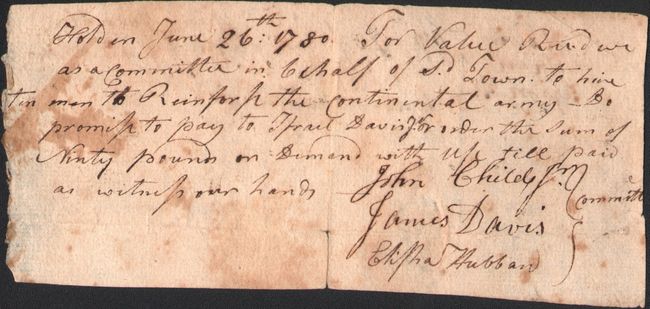 Holden June 26th: 1780. For Value Rec.d we
as a Committee in behalf of S.d Town to hire
ten men to Reinforss the Continental army Do
promiss to pay to Israel Davis Jr or order the Sum of
Ninty pounds on Demand with Uss till paid
as witness our hands
John Child
James Davis
Elisha Hubbard
Committe